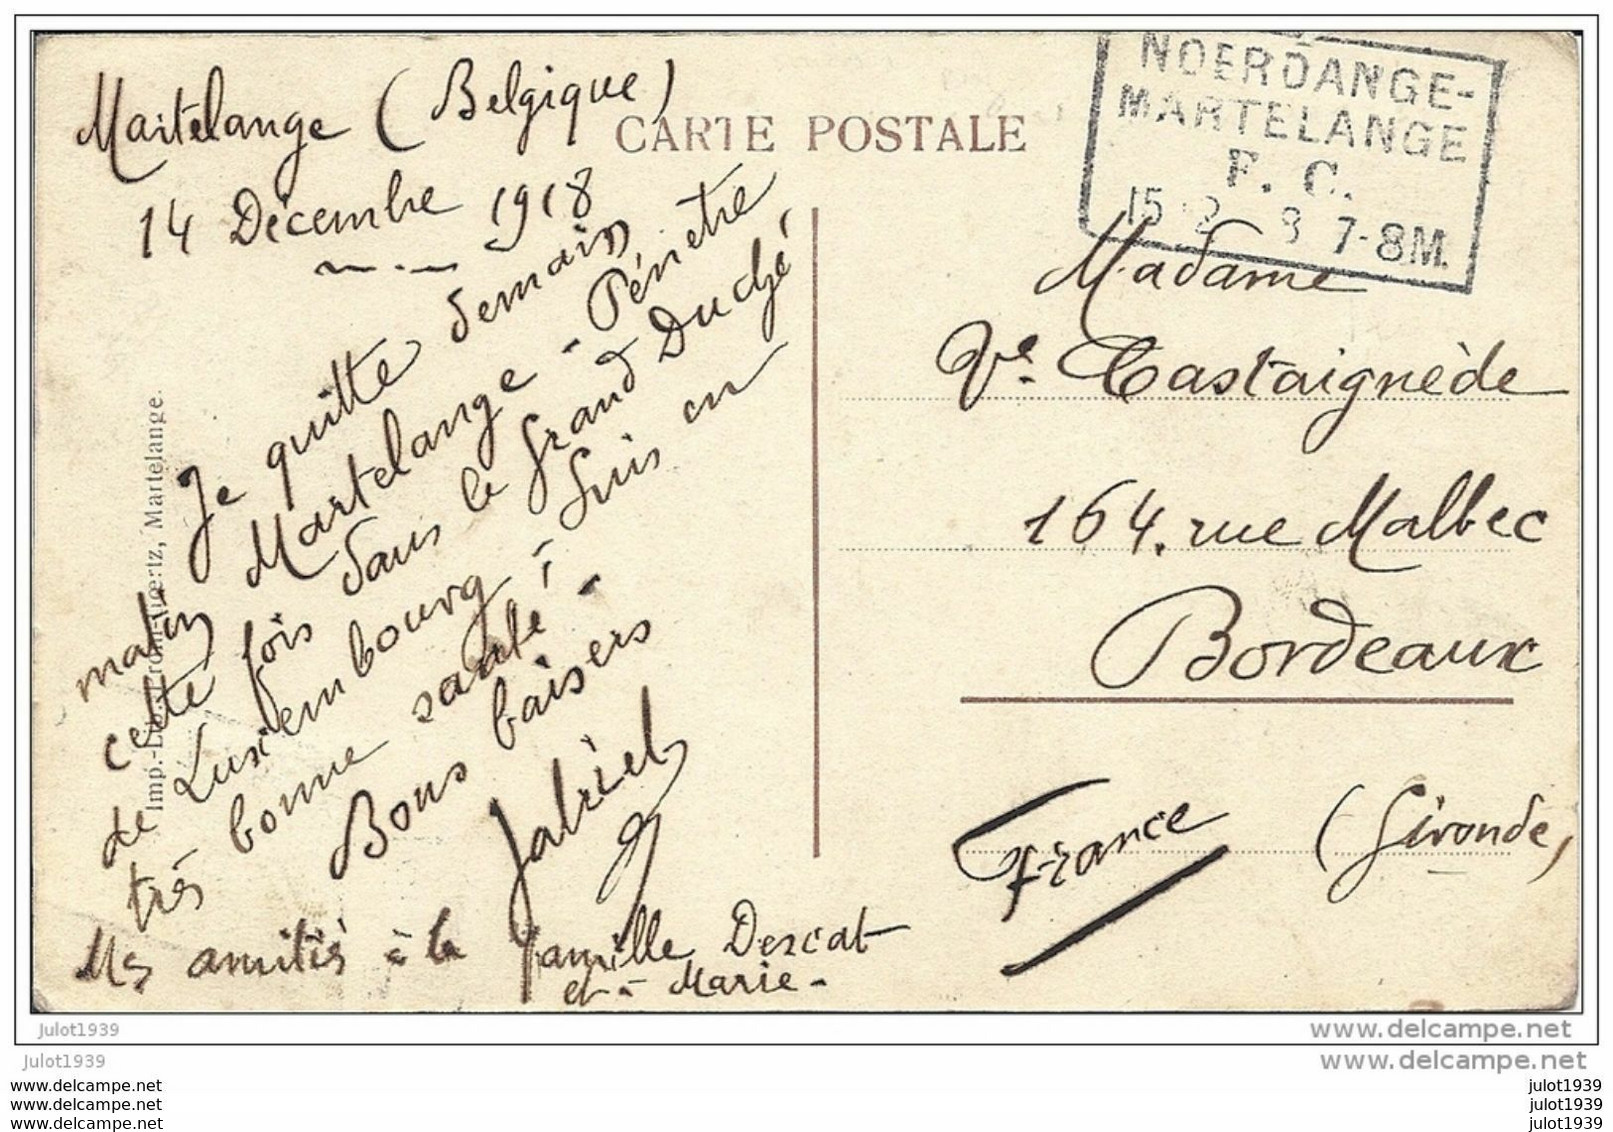 Martelange (Belgique)
14 Décembre 1918
Je quitte demain
matin Martelange - Pénètre
cette fois dans le Grand Duché
de Luxembourg - Suis en
très bonne santé -
Bons baisers -
Gabriel
Mes amitiés à la famille Descat
et à Marie -
CARTE POSTALE
NOERDANGE-
MARTELANGE
F. C.
15 2 8 7-8M.
Madame
Ve Castaignède
164. rue Malbec
Bordeaux
France
(Gironde)
Martelange.
julot1939
julot1939
www.delcampe.net
www.delcampe.net
www.delcampe.net
www.delcampe.net
www.delcampe.net
julot1939
julot1939
julot1939